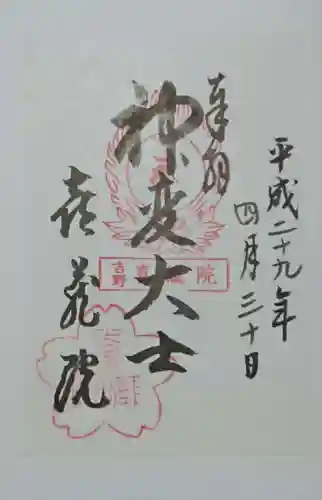 平成二十九年
四月三十日
奉拝
神変大士
喜蔵院
吉野喜蔵院